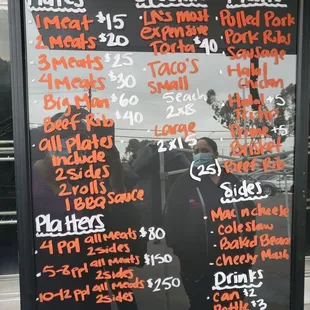 Plates
1 Meat $15
2 Meats $20
3 Meats $25
4 Meats $30
Big Man $60
Beef Rib $40
all Plates
include
2 sides
2 rolls
1 BBQ sauce
Platters
4 PPl all meats $80
2 sides
5-8 ppl all meats $150
2 sides
10-12 ppl all meats $250
2 sides
LA's most
expensive
Torta $40
Taco's
Small
5 each
2x$8
Large
2x15
Pulled Pork
Pork Ribs
Sausage
Halal
Chicken
Halal +5
Tri tip
Prime +5
Brisket
(25) Beef Rib
Sides
Mac n cheese
coleslaw
Baked Beans
cheesy Mash
Drinks
can $2
Bottle $3